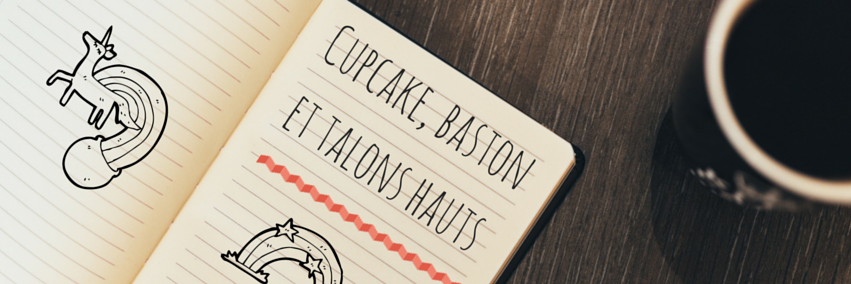 CUPCAKE, BASTON
ET TALONS HAUTS